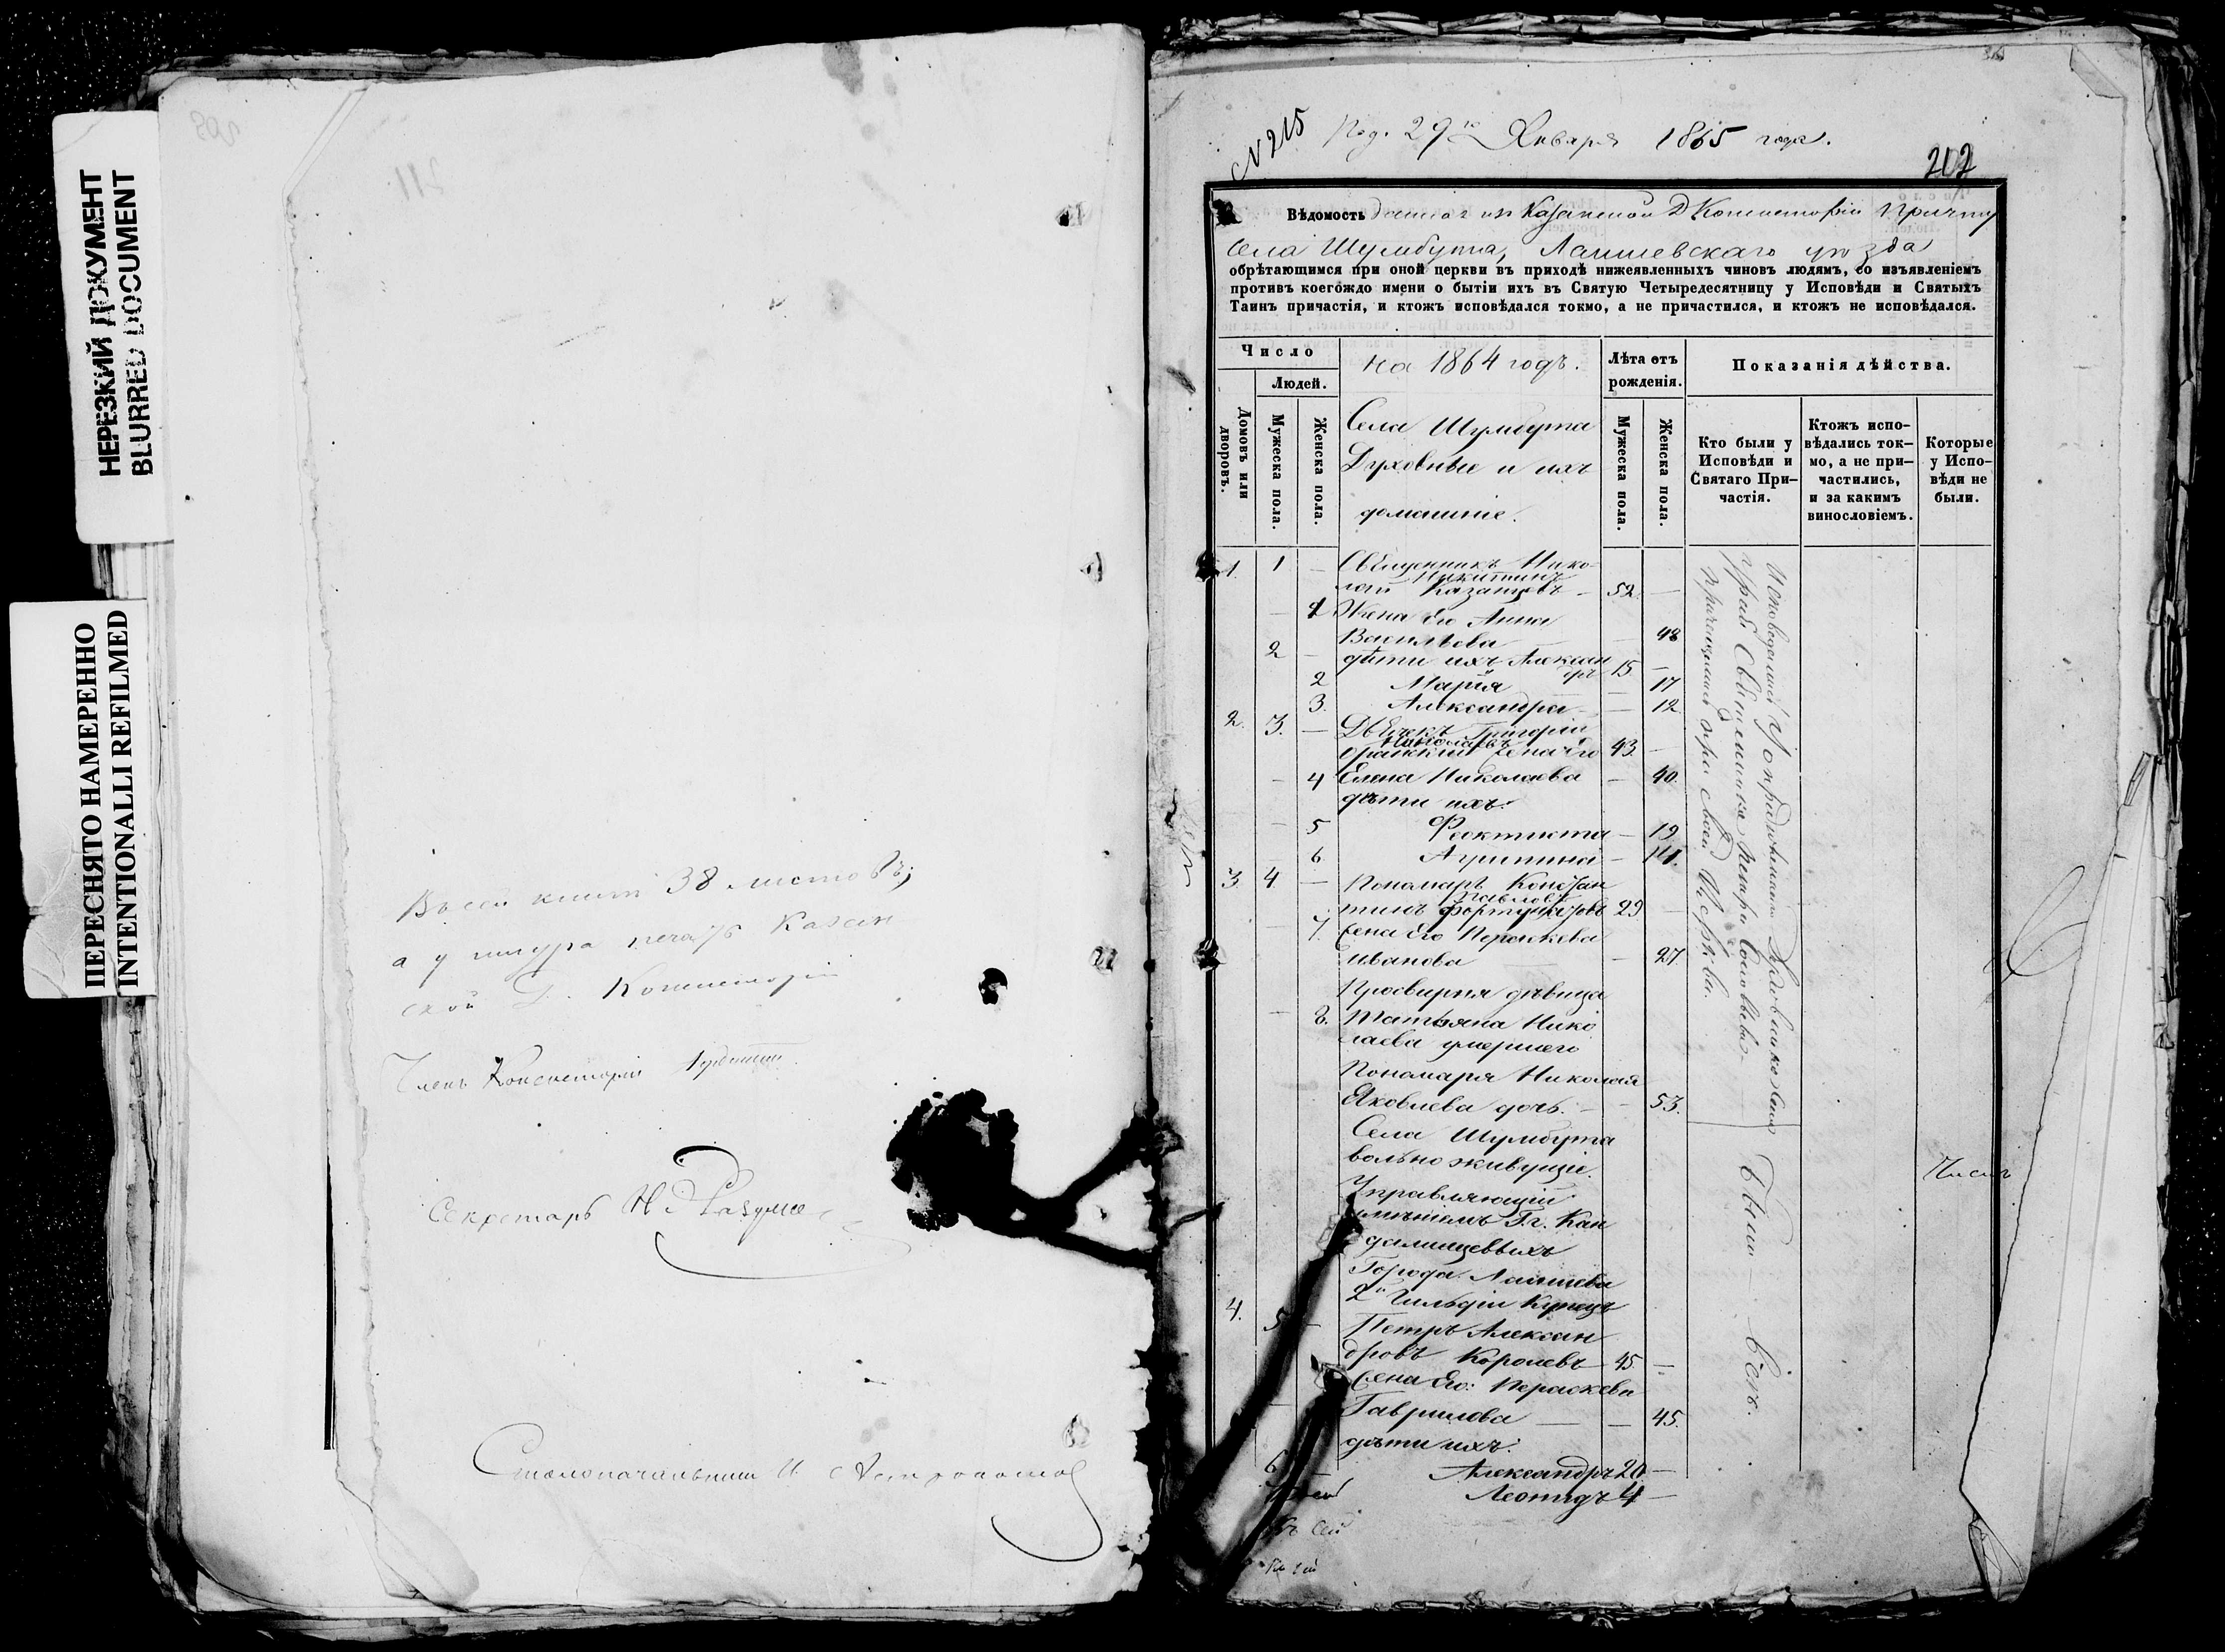 НЕРЕЗКИЙ ДОКУМЕНТ
BLURRED DOCUMENT
ПЕРЕСНЯТО НАМЕРЕННО
INTENTIONALLI REFILMED
211
38 листовъ;
а у шнура печать Казан
ской Д. Консисторіи
Членъ Консисторіи
Секретарь Н. Разумо
Столоначальникъ И.
№ 215 Под. 29го Января 1865 года.
212
Вѣдомость данная изъ Казанской Д Консисторіи Причту
Села Шумбута, Лаишевскаго уѣзда
обрѣтающимся при оной церкви въ приходѣ нижеявленныхъ чиновъ людямъ, со изъявленіемъ
противъ коегождо имени о бытіи ихъ въ Святую Четыредесятницу у Исповѣди и Святыхъ
Таинъ причастія, и ктожъ исповѣдался токмо, а не причастился, и ктожъ не исповѣдался.
Число
Людей.
Домовъ или дворовъ.
Мужеска пола.
Женска пола.
на 1864 годъ.
Лѣта отъ рожденія.
Мужеска пола.
Женска пола.
Показанія дѣйства.
Кто были у Исповѣди и Святаго При-частія.
Ктожъ испо-вѣдались ток-мо, а не при-частились, и за какимъ винословіемъ.
Которые у Испо-вѣди не были.
Села Шумбута
Духовные и ихъ
домашніе.
1. 1 — Священникъ Нико-
Никитинъ
лай Казанцевъ — 52 —
— 1 Жена его Анна
Васильева — 48
2 — дѣти ихъ Алексан
дръ 15 —
2 Марія — 17
3. Александра — 12
2. 3. — Дьячекъ Григорій
Николаевъ
жена его 43 —
— 4 Елена Николаева — 40.
дѣти ихъ:
— 5 Феоктиста — 19
— 6 Агрипина — 14.
3. 4 — Пономарь Констан
Павловъ
тинъ Фортунатовъ 29 —
— 7. Жена его Параскева
Иванова — 27
Просвирня дѣвица
— 8. Татьяна Нико
лаева умершаго
Пономаря Николая
Яковлева дочь. — 53.
Села Шумбута
вольно живущіе.
Управляющій
имѣніемъ Г.г. Кан
далинцевыхъ
Города Лаишева
2й Гильдіи Купецъ
4. 5 — Петръ Алексан
дровъ Королевъ — 45 —
Жена Его: Параскева
Гаврилова — — 45.
дѣти ихъ:
6 Александръ 20 —
Леонидъ 4 —
при своей Церкви.
Были